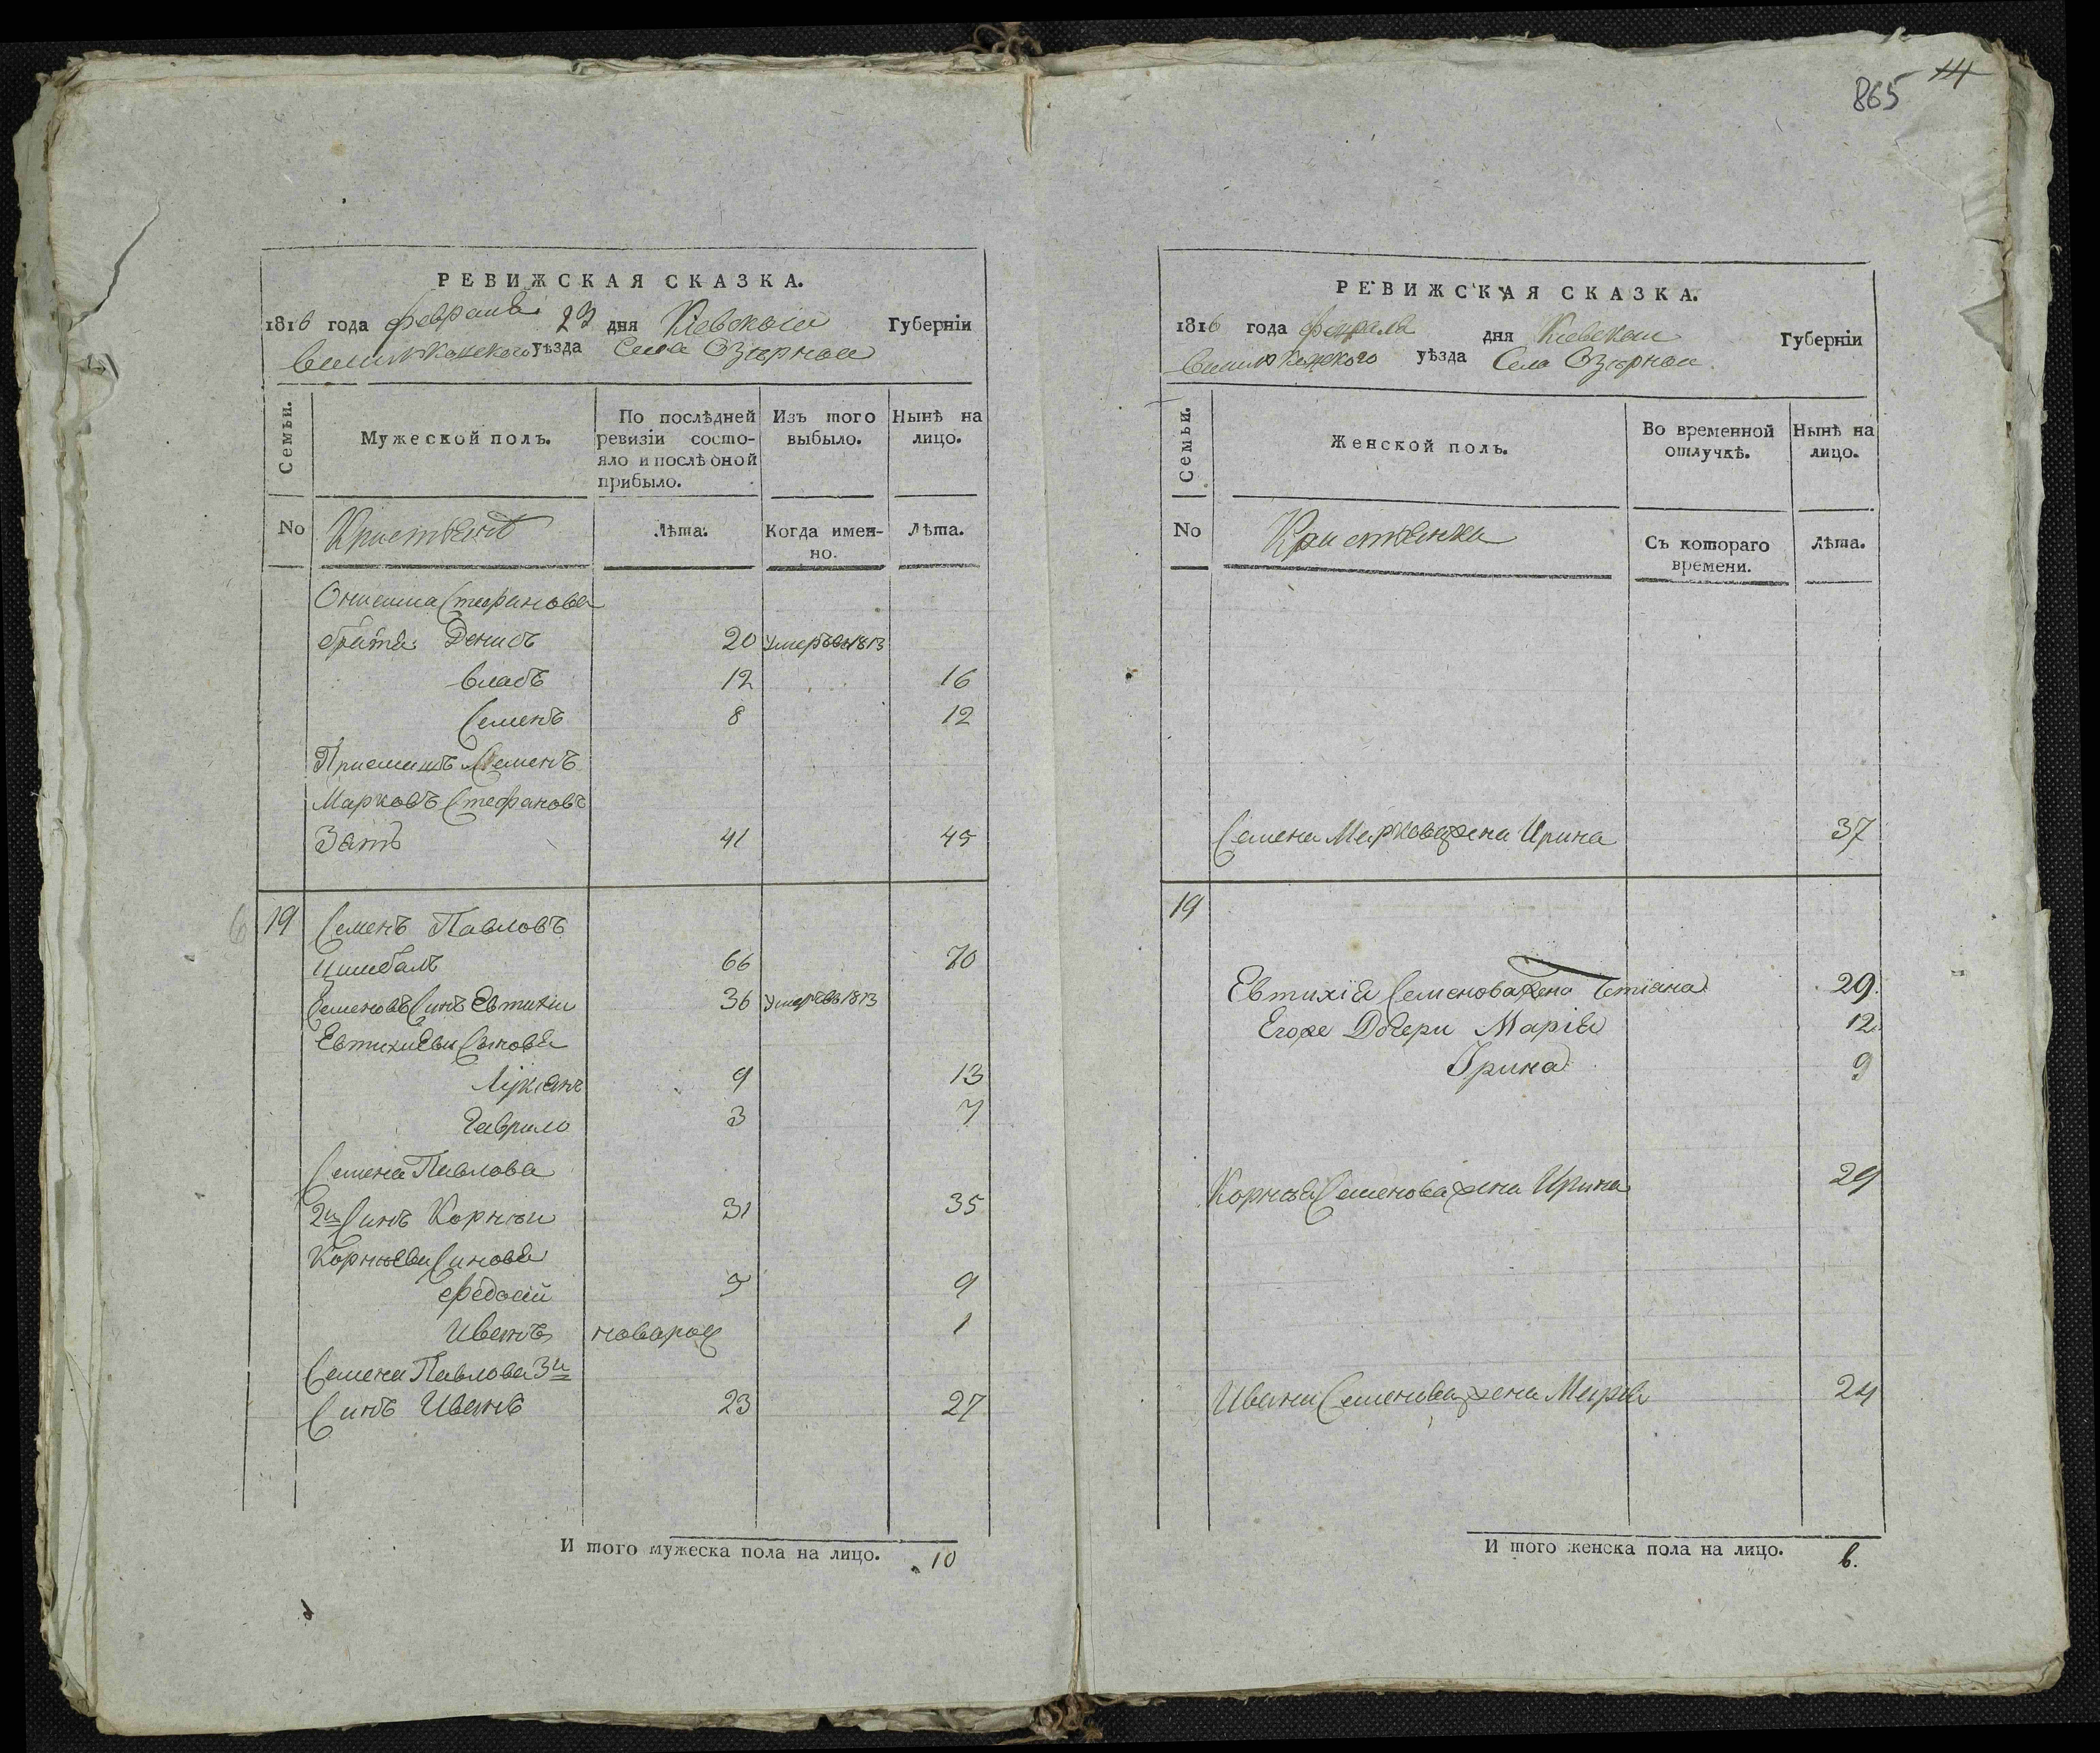 865 14
РЕВИЖСКАЯ СКАЗКА.
1816 года февраля 29 дня Кіевской Губерніи
Василковского уѣзда Села Озѣрной
Семьи.
Мужеской полъ.
По послѣдней ревизіи состояло и послѣ оной прибыло.
Изъ того выбыло.
Нынѣ на лицо.
No
Кристяне
Лѣта.
Когда именно.
Лѣта.
Онисима Стефанова
брата Денисъ 20 умеръ въ 1813
Власъ 12 16
Семенъ 8 12
Приемишъ Семенъ
Марковъ Стефановъ
Зать 41 45
19 Семенъ Павловъ
Цимбалъ 66 70
Семеновъ Синъ Евтихіи 36 умеръ въ 1813
Евтихиеви Синовя
Лукіянъ 9 13
Гаврило 3 7
Семена Павлова
2й Синъ Корнѣи 31 35
Корнѣеви Синовя
Федосій 5 9
Иванъ новорож 1
Семена Павлова 3й
Синъ Иванъ 23 27
И того мужеска пола на лицо. 10
РЕВИЖСКАЯ СКАЗКА.
1816 года февраля дня Кіевской Губерніи
Василковского уѣзда Села Озѣрной
Семьи.
Женской полъ.
Во временной отлучкѣ.
Нынѣ на лицо.
No
Кристянки
Съ котораго времени.
Лѣта.
Семена Маркова жена Ирина 37
19
Евтихія Семенова жена Тетіяна 29.
Егоже Дочери Марія 12
Ірина 9
Корнѣя Семенова жена Ирина 29
Ивана Семенова жена Марія 24
И того женска пола на лицо. 6.